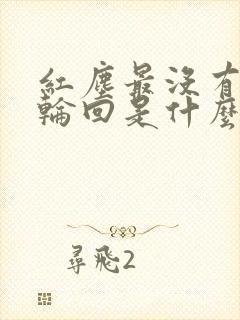 紅塵最沒有
輪回是什麼
尋飛2